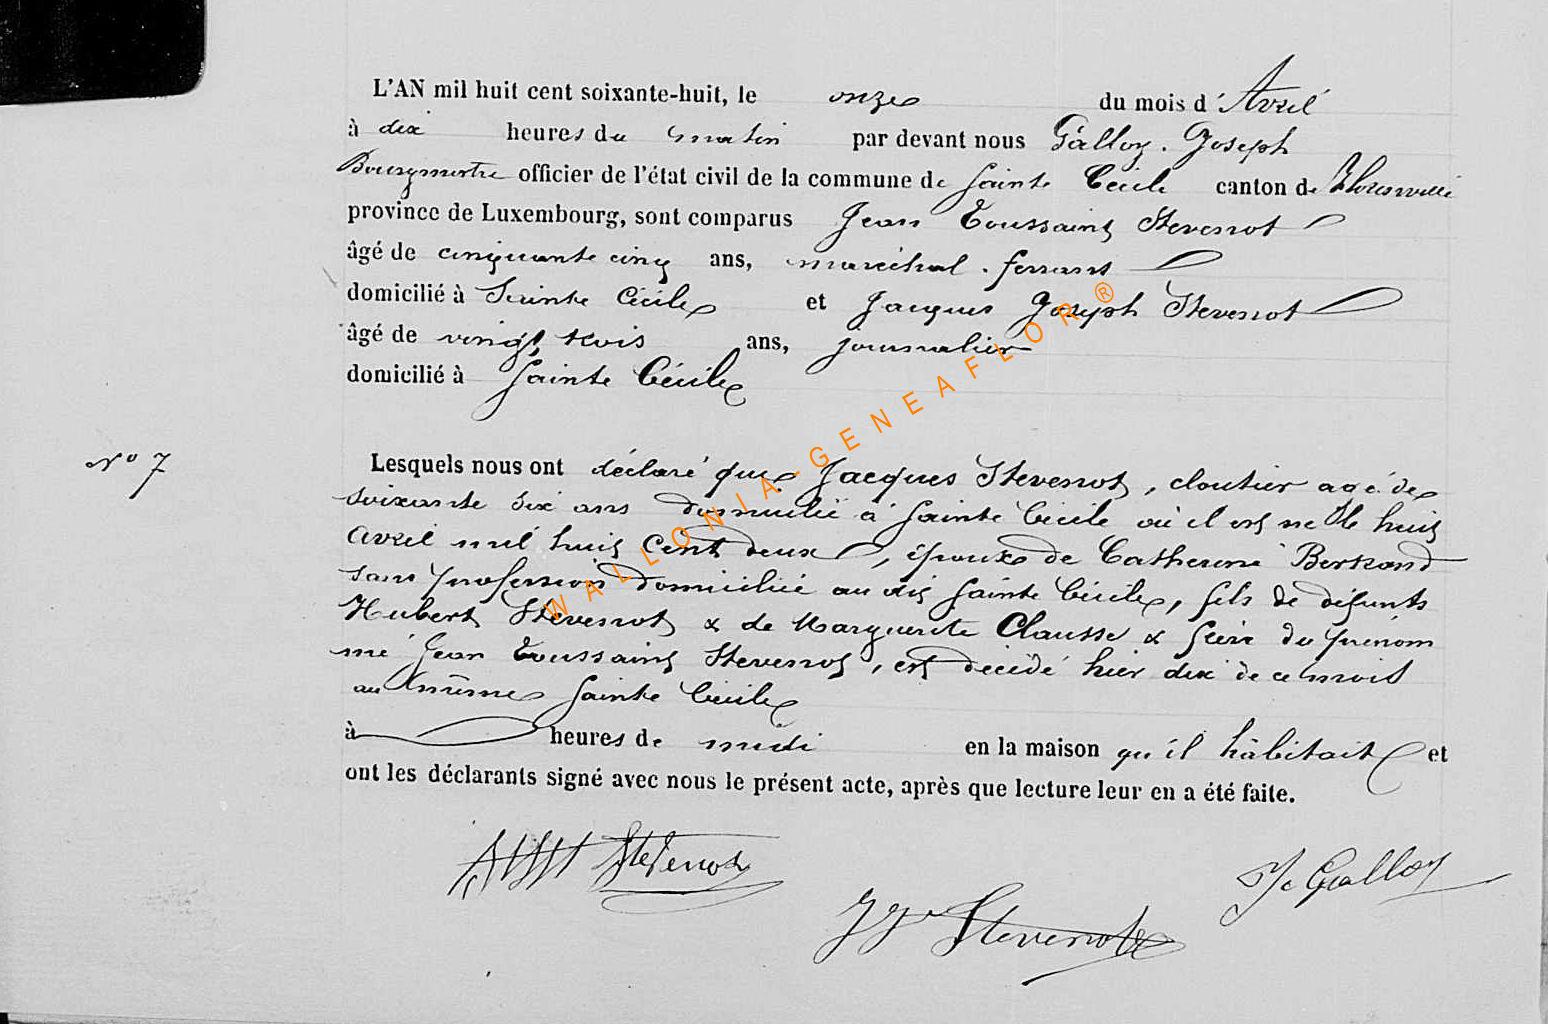 L'AN mil huit cent soixante-huit, le onze du mois d'Avril
à dix heures du matin par devant nous Galloy. Joseph
Bourgmestre officier de l'état civil de la commune de Sainte Cécile canton de Florenville
province de Luxembourg, sont comparus Jean Toussaint Stevenot
âgé de cinquante cinq ans, maréchal-ferrant
domicilié à Sainte Cécile et Jacques Joseph Stevenot
âgé de vingt trois ans, journalier
domicilié à Sainte Cécile
N° 7
Lesquels nous ont déclaré que Jacques Stevenot, cloutier agé de
soixante six ans domicilié à Sainte Cécile où il est né le huit
Avril mil huit cent deux, époux de Catherine Bertrand
sans profession domiciliée au dit Sainte Cécile, fils de défunts
Hubert Stevenot & de Marguerite Clausse & frère du prénom
mé Jean Toussaint Stevenot, est décédé hier dix de ce mois
au même Sainte Cécile
à heures de midi en la maison qu'il habitait et
ont les déclarants signé avec nous le présent acte, après que lecture leur en a été faite.
Stevenot
JJh Stevenot
Jh Galloy
WALLONIA-GENEAFLOR®